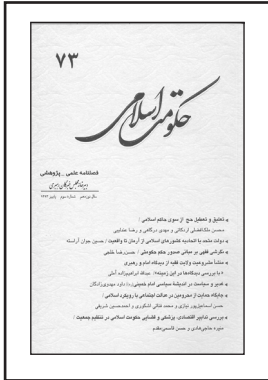 ۷۳
حکومت اسلامی
فصلنامه علمی _ پژوهشی
دبیرخانه مجلس خبرگان رهبری
سال نوزدهم شماره سوم پاییز ۱۳۹۳
تعلیق و تعطیل حج از سوی حاکم اسلامی /
محسن ملک‌افضلی اردکانی و مهدی درگاهی و رضا عندلیبی
دولت متحد یا اتحادیه کشورهای اسلامی از آرمان تا واقعیت / حسین جوان آراسته
نگرشی فقهی بر مبانی صدور حکم حکومتی / حسن‌رضا خلجی
منشأ مشروعیت ولایت فقیه از دیدگاه امام و رهبری
« با بررسی دیدگاه‌ها در این زمینه » / عبدالله ابراهیم‌زاده آملی
غدیر و سیاست در اندیشه سیاسی امام خمینی / داود مهدوی‌زادگان
جایگاه حمایت از محرومین در عدالت اجتماعی با رویکرد اسلامی /
حسن اسماعیل‌پور نیازی و محمد فنائی اشکوری و احمدحسین شریفی
بررسی تدابیر اقتصادی، پزشکی و قضایی حکومت اسلامی در تنظیم جمعیت /
منیره حاجی‌هادی و حسن قاسمی‌مقدم